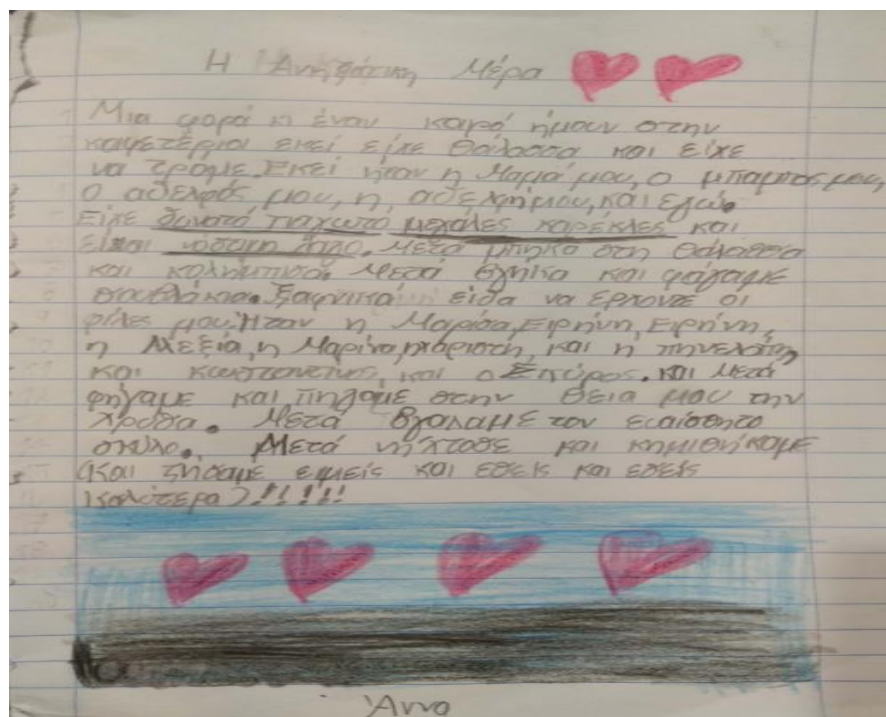 Η Μέρα
Μια φορά κι έναν καιρό ήμουν στην
καφετέρια εκεί είχε θάλασσα και είχε
να τρόμε. Εκεί ήταν η Μαμά μου, ο μπαμπας μου,
ο αδελφός μου, η αδελφήμου, και εγώ.
Είχε δυνατό παγωτό μεγάλες καρέκλες και
είμαι νόστιμη. Μετά μπήκα στη θάλασσα
και κολήμπισα. Μετά βγήκα και φάγαμε
σουβλάκια. Ξαφνικά είδα να έρχοντε οι
φίλες μου. Ήταν η Μαρίσα, Ειρήνη, Ειρήνη,
η Αλεξία, η Μαρίνα, και η πηνελόπη
και κωνσταντινος, και ο Σπύρος. και μετά
φήγαμε και πηγαμε στην θεια μου την
Χρύσα. Μετά βγαλαμε τον
σκύλο. Μετά νήχτοσε και κημιθήκαμε
(Και ζήσαμε εμείς και εσείς και εσείς
καλύτερα)!!!!!
Άννα